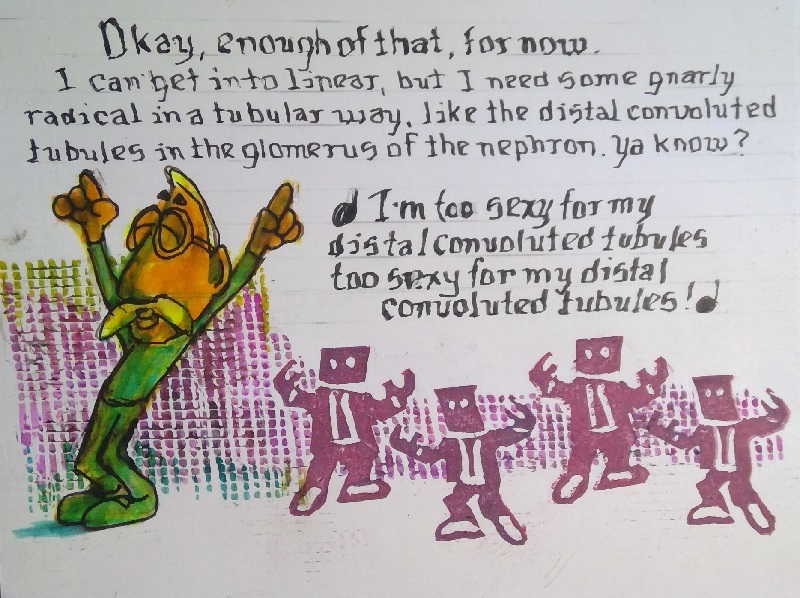 Okay, enough of that, for now.
I can get into linear, but I need some gnarly
radical in a tubular way, like the distal convoluted
tubules in the glomerus of the nephron. Ya know?
I'm too sexy for my
distal convoluted tubules
too sexy for my distal
convoluted tubules!